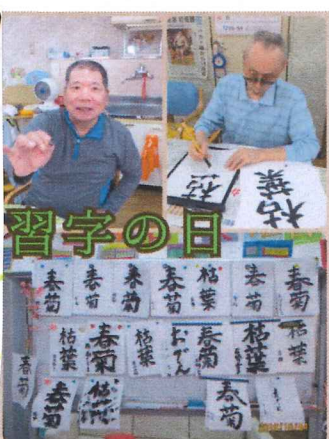 枯
枯葉
習字の日
春菊 春菊 春菊 春菊 枯葉 春菊 春菊
枯葉 春菊 枯葉 おでん 春菊 枯葉 枯葉
春菊 春菊 枯葉 春菊